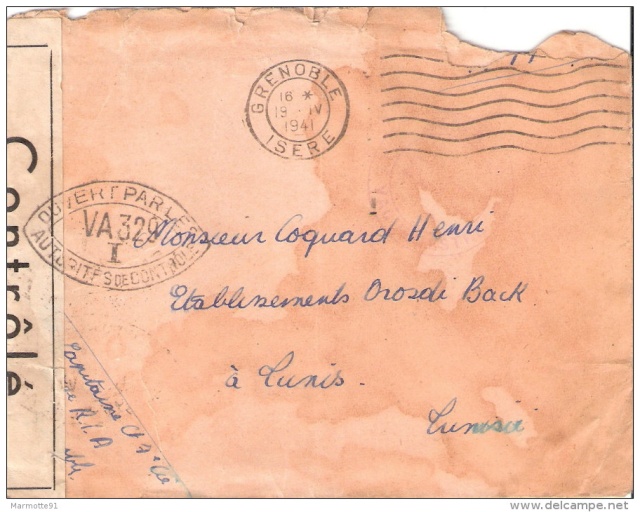 GRENOBLE
16 *
19 IV
1941
ISERE
Contrôlé
OUVERT PAR LES
VA 329
I
AUTORITÉS DE CONTRÔLE
Monsieur Coquard Henri
Etablissements Orosdi Back
à Tunis.
Tunisie
Capitaine
R.I.A
Marmotte91
delcampe.net